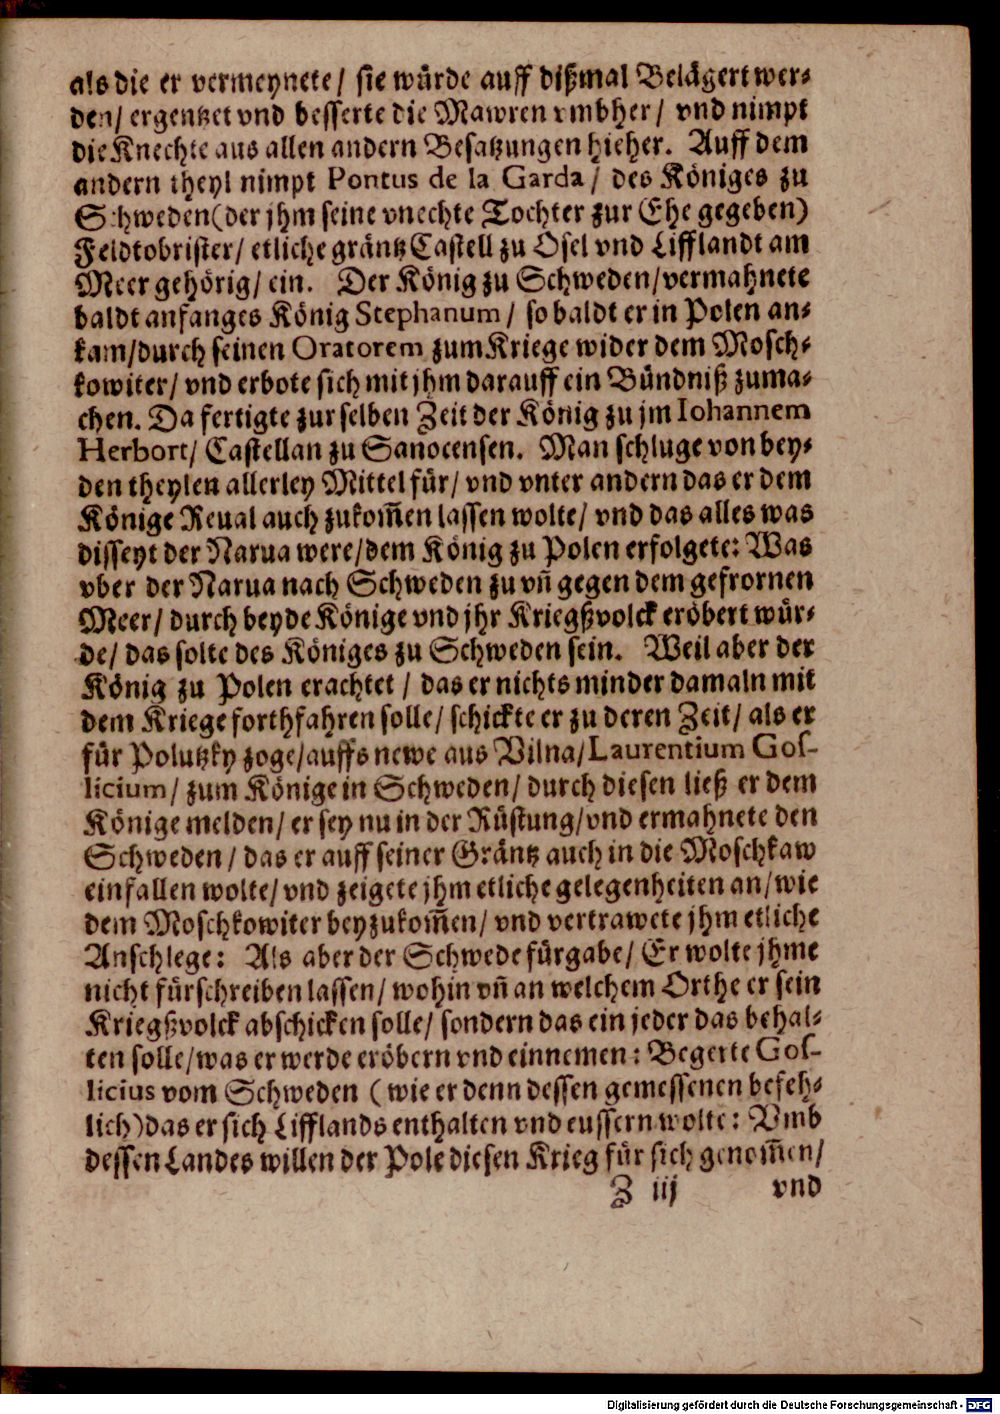 als die er vermeynete/ sie würde auff dißmal Belägert wer⸗
den/ ergentzet vnd besserte die Mawren vmbher/ vnd nimpt
die Knechte aus allen andern Besatzungen hieher. Auff dem
andern theyl nimpt Pontus de la Garda/ des Königes zu
Schweden (der jhm seine vnechte Tochter zur Ehe gegeben)
Feldtobrister/ etliche gräntz Castell zu Osel vnd Lifflandt am
Meer gehörig/ ein. Der König zu Schweden/ vermahnete
baldt anfanges König Stephanum/ so baldt er in Polen an⸗
kam/ durch seinen Oratorem zum Kriege wider dem Mosch⸗
kowiter/ vnd erbote sich mit jhm darauff ein Bündniß zuma⸗
chen. Da fertigte zur selben Zeit der König zu jm Iohannem
Herbort/ Castellan zu Sanocensen. Man schluge von bey⸗
den theylen allerley Mittel für/ vnd vnter andern das er dem
Könige Reual auch zukom̃en lassen wolte/ vnd das alles was
disseyt der Narua were/ dem König zu Polen erfolgete: Was
vber der Narua nach Schweden zu vn̄ gegen dem gefrornen
Meer/ durch beyde Könige vnd jhr Kriegßvolck eröbert wür⸗
de/ das solte des Königes zu Schweden sein. Weil aber der
König zu Polen erachtet/ das er nichts minder damaln mit
dem Kriege forthfahren solle/ schickte er zu deren Zeit/ als er
für Polutzky zoge/ auffs newe aus Vilna/ Laurentium Gos-
licium/ zum Könige in Schweden/ durch diesen ließ er dem
Könige melden/ er sey nu in der Rüstung/ vnd ermahnete den
Schweden/ das er auff seiner Gräntz auch in die Moschkaw
einfallen wolte/ vnd zeigete jhm etliche gelegenheiten an/ wie
dem Moschkowiter beyzukom̃en/ vnd vertrawete jhm etliche
Anschlege: Als aber der Schwede fürgabe/ Er wolte jhme
nicht fürschreiben lassen/ wohin vn̄ an welchem Orthe er sein
Kriegßvolck abschicken solle/ sondern das ein jeder das behal⸗
ten solle/ was er werde eröbern vnd einnemen: Begerte Gos-
licius vom Schweden (wie er denn dessen gemessenen befeh⸗
lich) das er sich Lifflands enthalten vnd eussern wolte: Vmb
dessen Landes willen der Pole diesen Krieg für sich genom̃en/
Z iij vnd
Digitalisierung gefördert durch die Deutsche Forschungsgemeinschaft - DFG